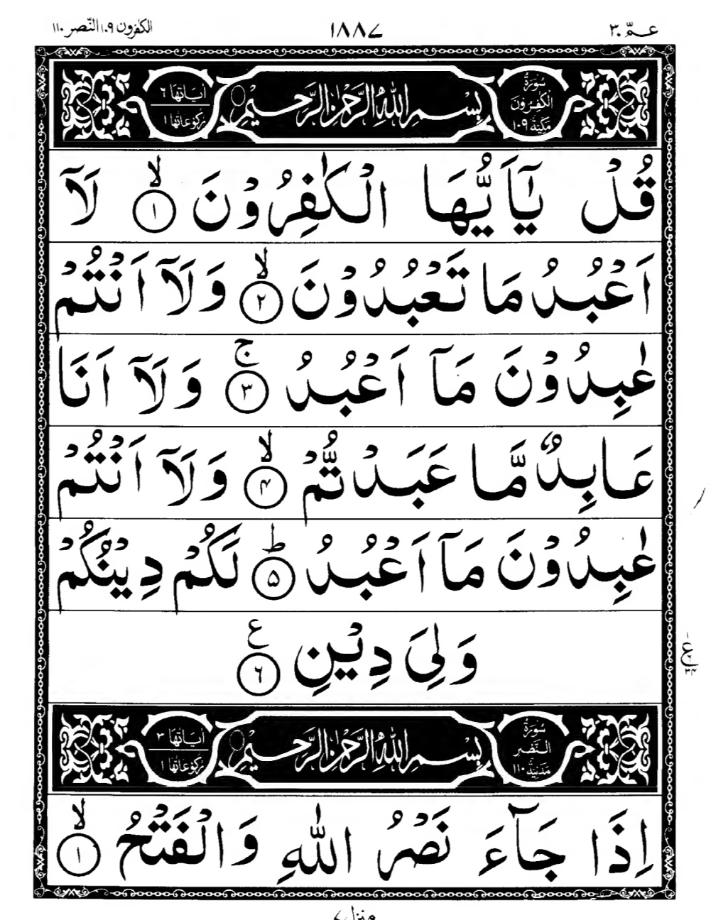 الكٰفرون ١٠٩ النّصر ١١٠ ١٨٨٧ عـمّ ٣٠
سُوْرَةُ الْكٰفِرُوْنَ مَكِّيَّةٌ ١٠٩ بِسْمِ اللّٰهِ الرَّحْمٰنِ الرَّحِيْمِ اٰيَاتُهَا ٦ رُكُوْعَاتُهَا ١
قُلْ يٰۤاَيُّهَا الْكٰفِرُوْنَ ۙ﴿۱﴾ لَاۤ
اَعْبُدُ مَا تَعْبُدُوْنَ ۙ﴿۲﴾ وَلَاۤ اَنْتُمْ
عٰبِدُوْنَ مَاۤ اَعْبُدُ ۚ﴿۳﴾ وَلَاۤ اَنَا
عَابِدٌ مَّا عَبَدْتُّمْ ۙ﴿۴﴾ وَلَاۤ اَنْتُمْ
عٰبِدُوْنَ مَاۤ اَعْبُدُ ؕ﴿۵﴾ لَكُمْ دِيْنُكُمْ
وَلِيَ دِيْنِ ﴿۶﴾ ع
سُوْرَةُ النَّصْرِ مَدَنِيَّةٌ ١١٠ بِسْمِ اللّٰهِ الرَّحْمٰنِ الرَّحِيْمِ اٰيَاتُهَا ٣ رُكُوْعَاتُهَا ١
اِذَا جَآءَ نَصْرُ اللّٰهِ وَالْفَتْحُ ۙ﴿۱﴾
منزل ٧